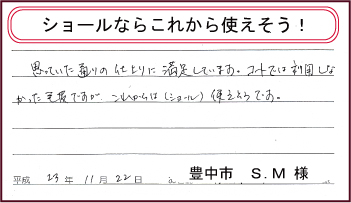 ショールならこれから使えそう！
思っていた通りの仕上りに満足しています。コートでは利用しな
かった毛皮ですが、これからは（ショール）使えそうです。
平成 23年 11月 22日
豊中市 S.M 様